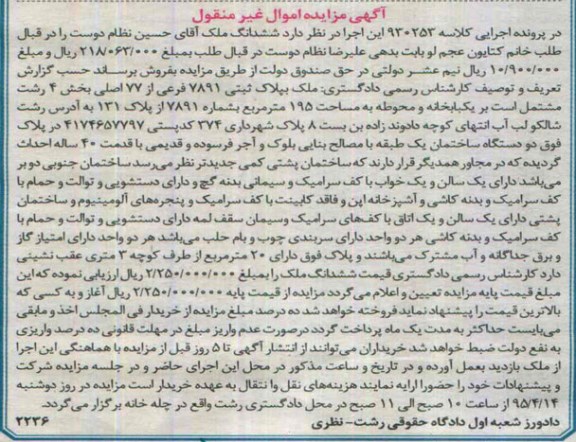 آگهی مزایده اموال غیر منقول
در پرونده اجرایی کلاسه ۹۳۰۲۵۳ این اجرا در نظر دارد ششدانگ ملک آقای حسین نظام دوست را در قبال
طلب خانم کتایون عجم لو بابت بدهی علیرضا نظام دوست در قبال طلب بمبلغ ۲۱۸/۰۶۳/۰۰۰ ریال و مبلغ
۱۰/۹۰۰/۰۰۰ ریال نیم عشر دولتی در حق صندوق دولت از طریق مزایده بفروش برساند حسب گزارش
تعریف و توصیف کارشناس رسمی دادگستری: ملک بپلاک ثبتی ۷۸۹۱ فرعی از ۷۷ اصلی بخش ۴ رشت
مشتمل است بر یکبابخانه و محوطه به مساحت ۱۹۵ مترمربع بشماره ۷۸۹۱ از پلاک ۱۳۱ به آدرس رشت
شالکو لب آب انتهای کوچه دادوند زاده بن بست ۸ پلاک شهرداری ۳۷۴ کدپستی ۴۱۷۴۶۵۷۷۹۷ در پلاک
فوق دو دستگاه ساختمان یک طبقه با مصالح بنایی بلوک و آجر فرسوده و قدیمی با قدمت ۴۰ ساله احداث
گردیده که در مجاور همدیگر قرار دارند که ساختمان پشتی کمی جدیدتر نظر می‌رسد ساختمان جنوبی دو بر
می‌باشد دارای یک سالن و یک خواب با کف سرامیک و سیمانی بدنه گچ و دارای دستشویی و توالت و حمام با
کف سرامیک و بدنه کاشی و آشپزخانه اپن و فاقد کابینت با کف سرامیک و پنجره‌های آلومینیوم و ساختمان
پشتی دارای یک سالن و یک اتاق با کف‌های سرامیک وسیمان سقف لمه دارای دستشویی و توالت و حمام با
کف سرامیک و بدنه کاشی هر دو واحد دارای سربندی چوب و بام حلب می‌باشد هر دو واحد دارای امتیاز گاز
و برق جداگانه و آب مشترک می‌باشند و پلاک فوق دارای ۲۰ مترمربع از طرف کوچه ۳ متری عقب نشینی
دارد کارشناس رسمی دادگستری قیمت ششدانگ ملک را بمبلغ ۲/۲۵۰/۰۰۰/۰۰۰ ریال ارزیابی نموده که این
مبلغ قیمت پایه مزایده تعیین و اعلام می‌گردد مزایده از قیمت پایه ۲/۲۵۰/۰۰۰/۰۰۰ ریال آغاز و به کسی که
بالاترین قیمت را پیشنهاد نماید فروخته خواهد شد ده درصد مبلغ مزایده از خریدار فی المجلس اخذ و مابقی
می‌بایست حداکثر به مدت یک ماه پرداخت گردد درصورت عدم واریز مبلغ در مهلت قانونی ده درصد واریزی
به نفع دولت ضبط خواهد شد خریداران می‌توانند از انتشار آگهی تا ۵ روز قبل از مزایده با هماهنگی این اجرا
از ملک بازدید بعمل آورده و در تاریخ و ساعت مذکور در محل این اجرای حاضر و در جلسه مزایده شرکت
و پیشنهادات خود را حضورا ارایه نمایند هزینه‌های نقل وا نتقال به عهده خریدار است مزایده در روز دوشنبه
۹۵/۴/۱۴ از ساعت ۱۰ صبح الی ۱۱ صبح در محل دادگستری رشت واقع در چله خانه برگزار می‌گردد.
دادورز شعبه اول دادگاه حقوقی رشت- نظری
۲۲۳۶